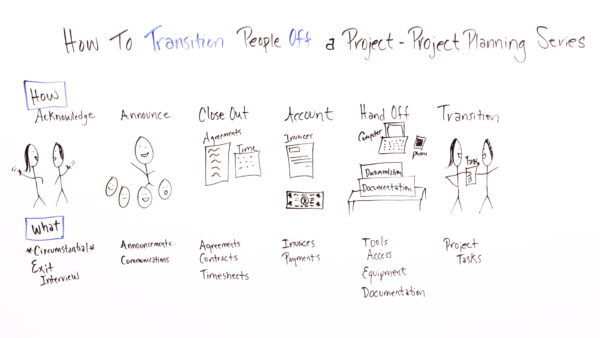 How To Transition People Off a Project - Project Planning Series
How
Acknowledge
Announce
Close Out
Account
Hand Off
Transition
Agreements
Time
Invoices
Computer
phone
Documentation
Documentation
Tasks
What
*Circumstantial*
Exit
Interview
Announcements
Communications
Agreements
Contracts
Timesheets
Invoices
Payments
Tools
Access
Equipment
Documentation
Project
Tasks